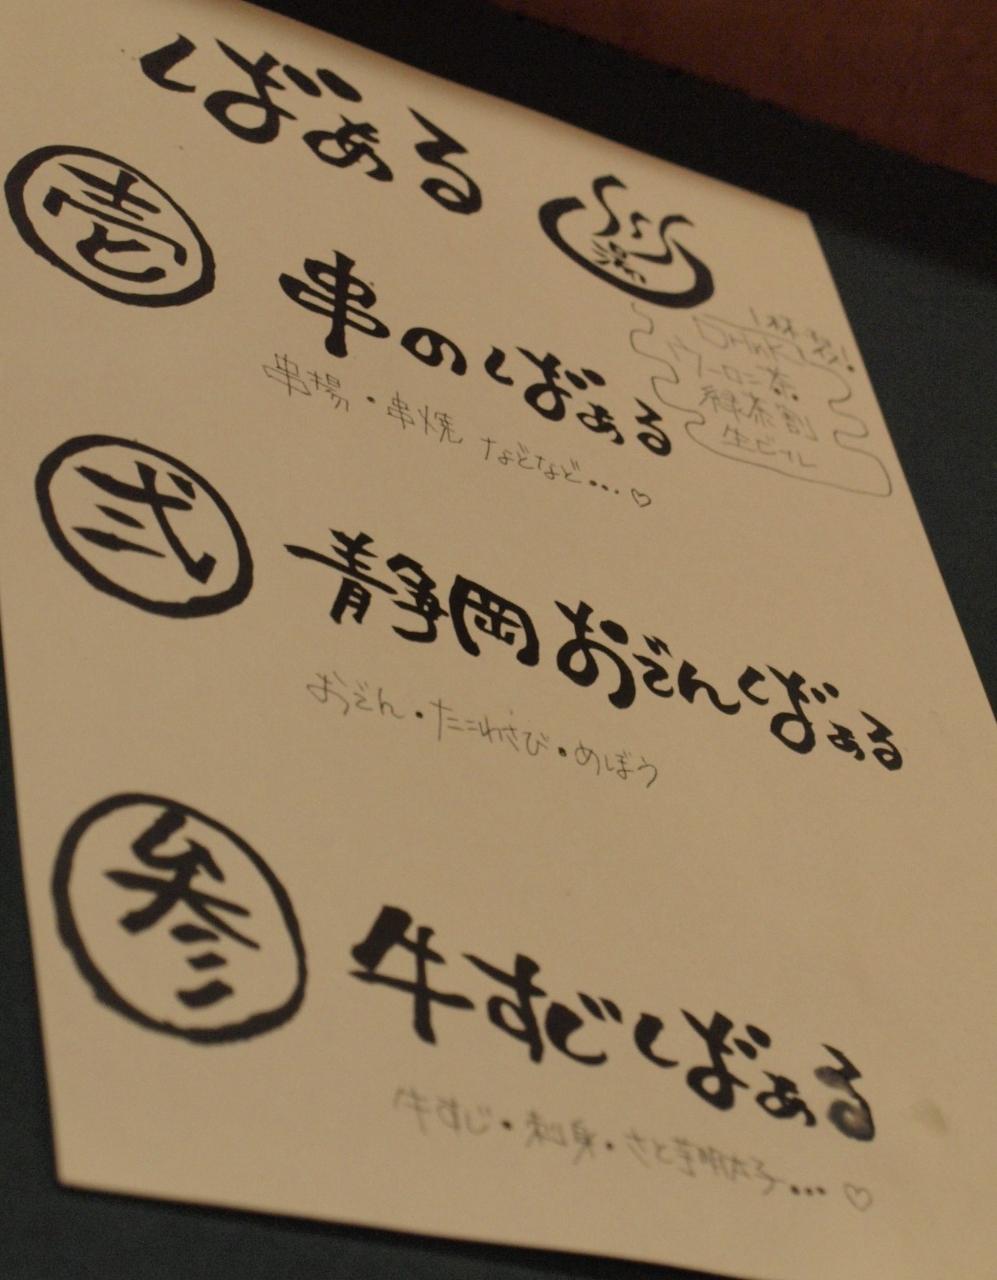 ばぁる
湯
1杯
DRiNK
ウーロン茶
緑茶割
生ビール
壱 串のばぁる
串揚・串焼 などなど…♡
弐 静岡おでんばぁる
おでん・たこわさび・めぼう
参 牛すじばぁる
牛すじ・刺身・さと芋明太子…♡